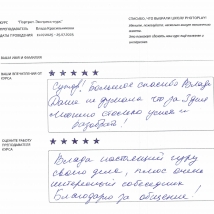 КУРС "Портрет. Экспресс-курс"
ПРЕПОДАВАТЕЛЬ Влада Красильникова
ДАТЫ ПРОВЕДЕНИЯ
СПАСИБО, ЧТО ВЫБРАЛИ ЦИКЛЫ PHOTOPLAY!
ВАШЕ ИМЯ И ФАМИЛИЯ
ВАШИ ВПЕЧАТЛЕНИЯ ОТ КУРСА
★★★★★
Супер! Большое спасибо Влада
Даже не думала что за 3 дня
можно столько успеть и
разобрать!
ОЦЕНИТЕ РАБОТУ ПРЕПОДАВАТЕЛЯ КУРСА
★★★★★
Влада настоящий гуру
своего дела, плюс очень
интересный собеседник
Благодарю за общение!